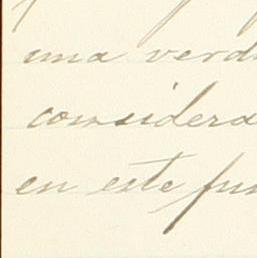 una verd
considera
en este pun